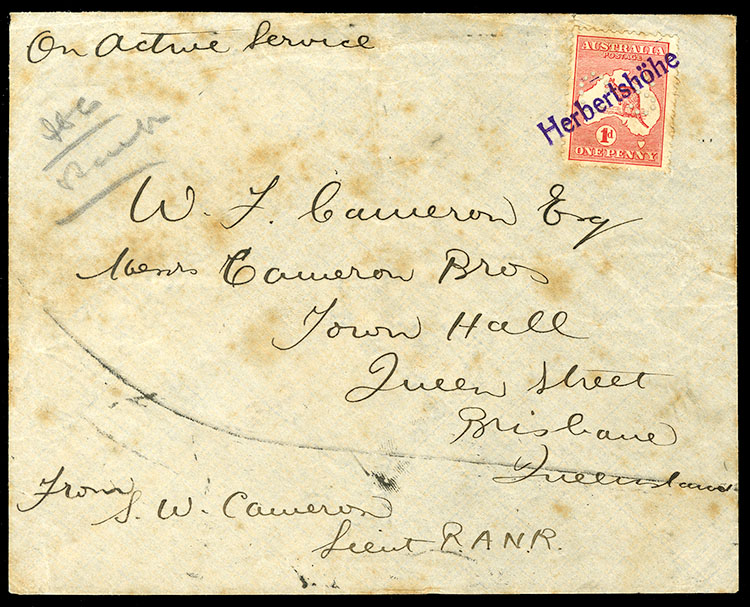 On Active Service
AUSTRALIA
POSTAGE
Herbertshöhe
1d
ONE PENNY
W. F. Cameron Esq
Messrs Cameron Bros
Town Hall
Queen Street
Brisbane
Queensland
From
S. W. Cameron
Lieut R.A.N.R.